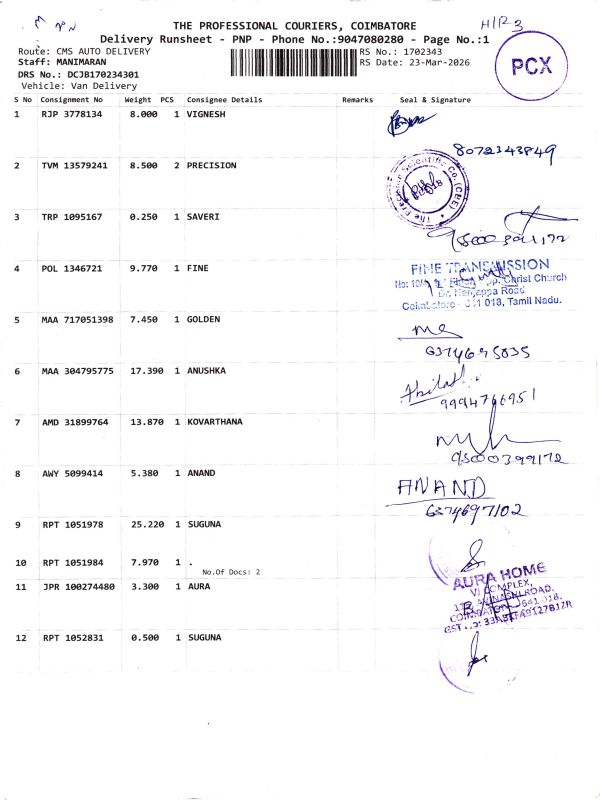 THE PROFESSIONAL COURIERS, COIMBATORE
Delivery Runsheet - PNP - Phone No.:9047080280 - Page No.:1
Route: CMS AUTO DELIVERY
RS No.: 1702343
Staff: MANIMARAN
RS Date: 23-Mar-2026
DRS No.: DCJB170234301
Vehicle: Van Delivery
PCX
S No Consignment No Weight PCS Consignee Details Remarks Seal & Signature
1 RJP 3778134 8.000 1 VIGNESH
8072343849
2 TVM 13579241 8.500 2 PRECISION
3 TRP 1095167 0.250 1 SAVERI
4 POL 1346721 9.770 1 FINE
FINE TRANSMISSION
Christ Church
Coimbatore - 641 018, Tamil Nadu.
5 MAA 717051398 7.450 1 GOLDEN
6374695035
6 MAA 304795775 17.390 1 ANUSHKA
9994766951
7 AMD 31899764 13.870 1 KOVARTHANA
9500399172
8 AWY 5099414 5.380 1 ANAND
ANAND
6374697102
9 RPT 1051978 25.220 1 SUGUNA
10 RPT 1051984 7.970 1 .
No.Of Docs: 2
11 JPR 100274480 3.300 1 AURA
AURA HOME
VJ COMPLEX,
12 RPT 1052831 0.500 1 SUGUNA